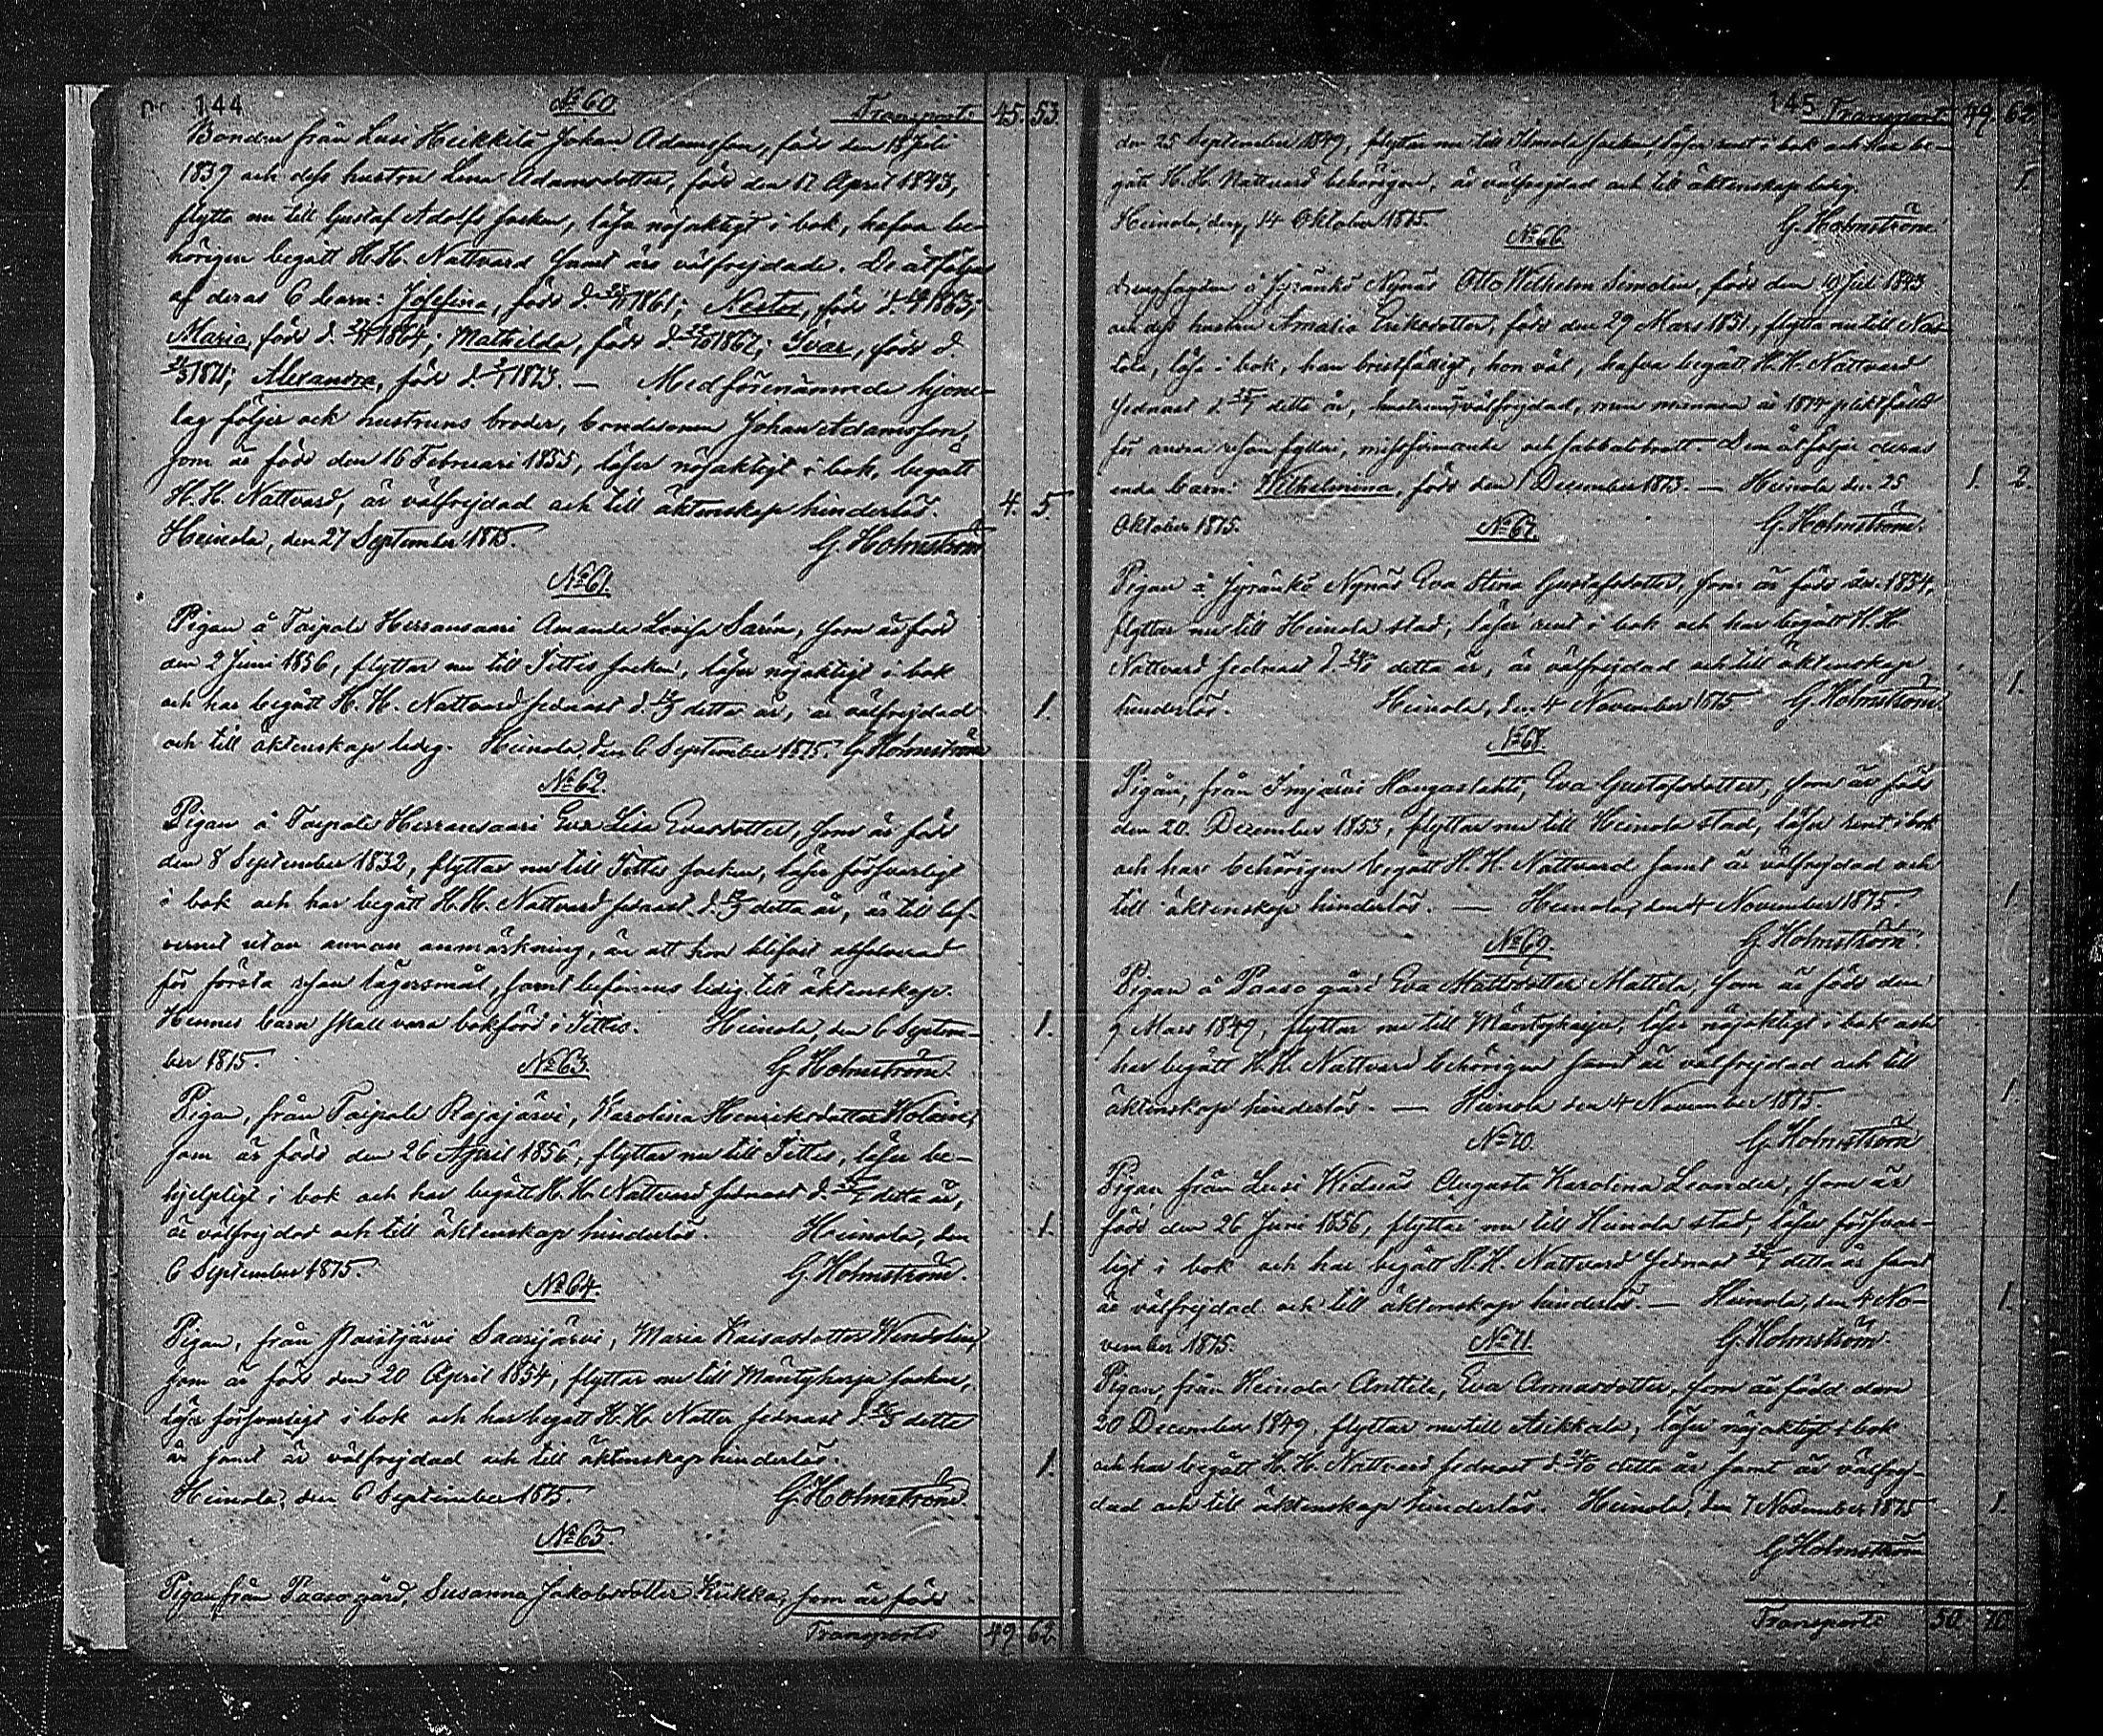 144
No 60.
Transport 45. 53.
Bonden från Lusi Heikkilä Johan Adamsson, född den 18 Juli
1839 och dess hustru Lena Adamsdotter, född den 17 April 1843,
flytta nu till Gustaf Adolfs socken, läsa nöjaktigt i bok, hafva be-
hörigen begått H.H. Nattvard samt äro välfrejdade. De åtföljas
af deras 6 barn: Josefina, född d. 1861; Nestor, född d. 1863;
Maria, född d. 1864; Mathilda, född d. 1867; Ivar, född d.
1871; Alexandra, född d. 1873. — Med förenämnde hjone-
lag följer ock hustruns broder, bondesonen Johan Adamsson,
som är född den 16 Februari 1855, läser nöjaktigt i bok, begått
H. H. Nattvard, är välfrejdad och till äktenskap hinderlös. 4. 5.
Heinola, den 27 September 1875. G. Holmström
No 61.
Pigan å Taipale Herransaari Amanda Lovisa Sarin, som är född
den 2 Juni 1856, flyttar nu till Jittis socken, läser nöjaktigt i bok
och har begått H. H. Nattvard sednast d. detta år, är välfrejdad 1.
och till äktenskap ledig. Heinola, den 6 September 1875. G. Holmström
No 62.
Pigan å Taipale Herransaari Eva Lisa Evasdotter, som är född
den 8 September 1832, flyttar nu till Jittis socken, läser försvarligt
i bok och har begått H.H. Nattvard sednast d. detta år, är till lef-
vernet utan annan anmärkning, än att hon blifvit absolverad
för första resan lägersmål, samt befinnes ledig till äktenskap.
Hennes barn skall vara bokförd i Jittis. Heinola, den 6 Septem- 1.
ber 1875. No 63. G. Holmström.
Pigan, från Taipale Rajajärvi, Karolina Henriksdotter
som är född den 26 April 1856, flyttar nu till Jittis, läser be-
hjelpligt i bok och har begått H. H. Nattvard sednast d. detta år,
är välfrejdad och till äktenskap hinderlös. Heinola, den 1.
6 September 1875. No 64. G. Holmström.
Pigan, från Paistjärvi Saarijärvi, Maria Kaisasdotter
som är född den 20 April 1854, flyttar nu till Mäntyharju socken,
läser försvarligt i bok och har begått H. H. Nattv. sednast d. detta
år samt är välfrejdad och till äktenskap hinderlös. 1.
Heinola, den 6 September 1875. G. Holmström.
No 65.
Pigan från Paaso gård, Susanna Jakobsdotter Kukka, som är född
Transport 49. 62.
145 Transport 49. 62
den 25 September 1849, flyttar nu till socken, läser rent i bok och har be-
gått H. H. Nattvard behörigen, är välfrejdad och till äktenskap ledig. 1.
Heinola, den 14 Oktober 1875. G. Holmström.
No 66.
å Jyränkö Nynäs Otto Wilhelm Simolin, född den 10 Juli 1843
och dess hustru Amalia Eriksdotter, född den 29 Mars 1851, flytta nu till Nas-
tola, läsa i bok, han bristfälligt, hon väl, hafva begått H. H. Nattvard
sednast d. detta år, hustrun välfrejdad, men mannen är 1874 pliktfälld
för andra resan fylleri, och sabbatsbrott. Dem åtföljer deras
enda barn: Wilhelmina, född den 1 December 1873. — Heinola den 25 1. 2.
Oktober 1875. No 67. G. Holmström.
Pigan å Jyränkö Nynäs Eva Stina Gustafsdotter, som är född år 1854,
flyttar nu till Heinola stad; läser rent i bok och har begått H.H.
Nattvard sednast d. detta år, är välfrejdad och till äktenskap 1.
hinderlös. Heinola, den 4 November 1875. G. Holmström.
No 68.
Pigan, från Imjärvi Hangaslahti, Eva Gustafsdotter, som är född
den 20 December 1853, flyttar nu till Heinola stad, läser rent i bok
och har behörigen begått H. H. Nattvard samt är välfrejdad och
till äktenskap hinderlös. — Heinola, den 4 November 1875. 1
No 69. G. Holmström.
Pigan å Paaso gård Eva Mattsdotter Mattila, som är född den
9 Mars 1849, flyttar nu till Mäntyharju, läser nöjaktigt i bok och
har begått H. H. Nattvard behörigen samt är välfrejdad och till
äktenskap hinderlös. — Heinola den 4 November 1875 1
No 70. G. Holmström
Pigan från Lusi Augusta Karolina Leander, som är
född den 26 Juni 1856, flyttar nu till Heinola stad, läser försvar-
ligt i bok och har begått H. H. Nattvard sednast detta år samt
är välfrejdad och till äktenskap hinderlös. — Heinola, den 4 No- 1.
vember 1875. No 71. G. Holmström.
Pigan, från Heinola Anttila, Eva Annasdotter, som är född den
20 December 1849, flyttar nu till Asikkala, läser nöjaktigt i bok
och har begått H. H. Nattvard sednast d. detta år samt är välfrej-
dad och till äktenskap hinderlös. Heinola, den 7 November 1875 1.
G. Holmström
Transport 50. 70.